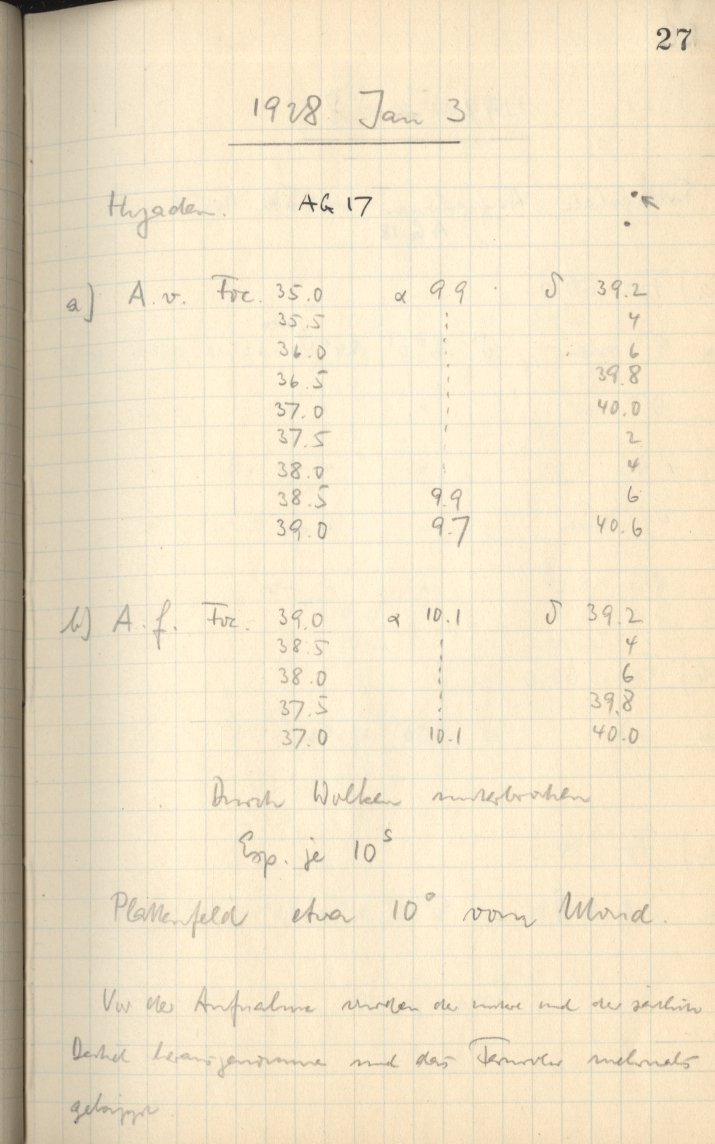 27
1928 Jan 3
Hyaden. AG 17
a) A. v. Foc. 35.0 α 9.9 δ 39.2
35.5 4
36.0 6
36.5 39.8
37.0 40.0
37.5 2
38.0 4
38.5 9.9 6
39.0 9.7 40.6
b) A. f. Foc. 39.0 α 10.1 δ 39.2
38.5 4
38.0 6
37.5 39.8
37.0 10.1 40.0
Durch Wolken unterbrochen
Exp. je 10s
Plattenfeld etwa 10° vom Mond.
Vor der Aufnahme wurden der untere und der seitliche
Deckel herausgenommen und das Fernrohr mehrmals
gekippt.